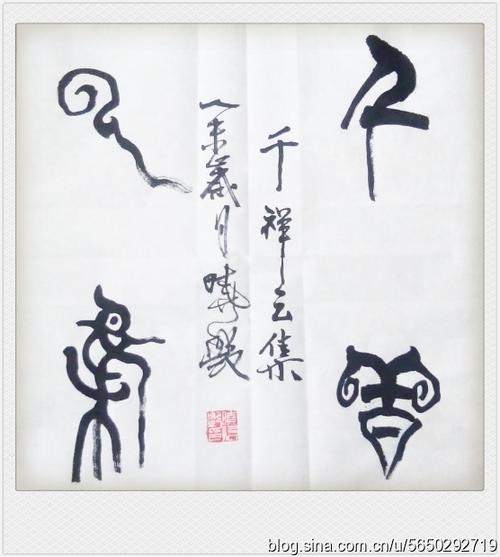 千祥
千祥云集
乙未歲月
云集
blog.sina.com.cn/u/5650292719